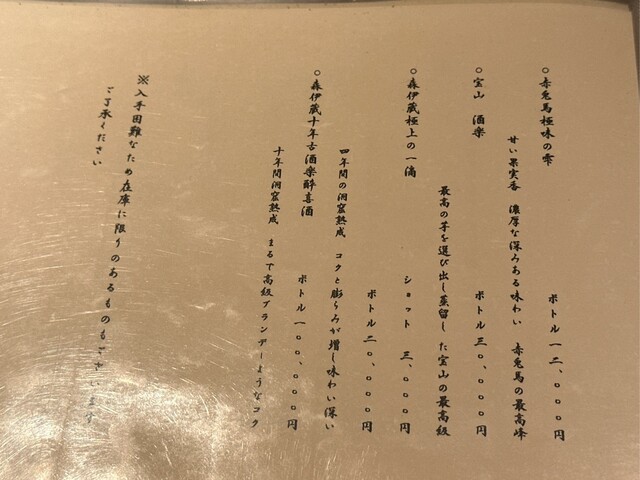 ○赤兎馬極味の雫
ボトル一二、〇〇〇円
甘い果実香 濃厚な深みある味わい 赤兎馬の最高峰
○宝山 酒楽
ボトル三〇、〇〇〇円
最高の芋を選び出し蒸留した宝山の最高級
○森伊蔵極上の一滴
ショット 三、〇〇〇円
ボトル二〇、〇〇〇円
四年間の洞窟熟成 コクと膨らみが増し味わい深い
○森伊蔵十年古酒楽酔喜酒
ボトル一〇〇、〇〇〇円
十年間洞窟熟成 まるで高級ブランデーようなコク
※入手困難なため在庫に限りのあるものもございます
ご了承ください